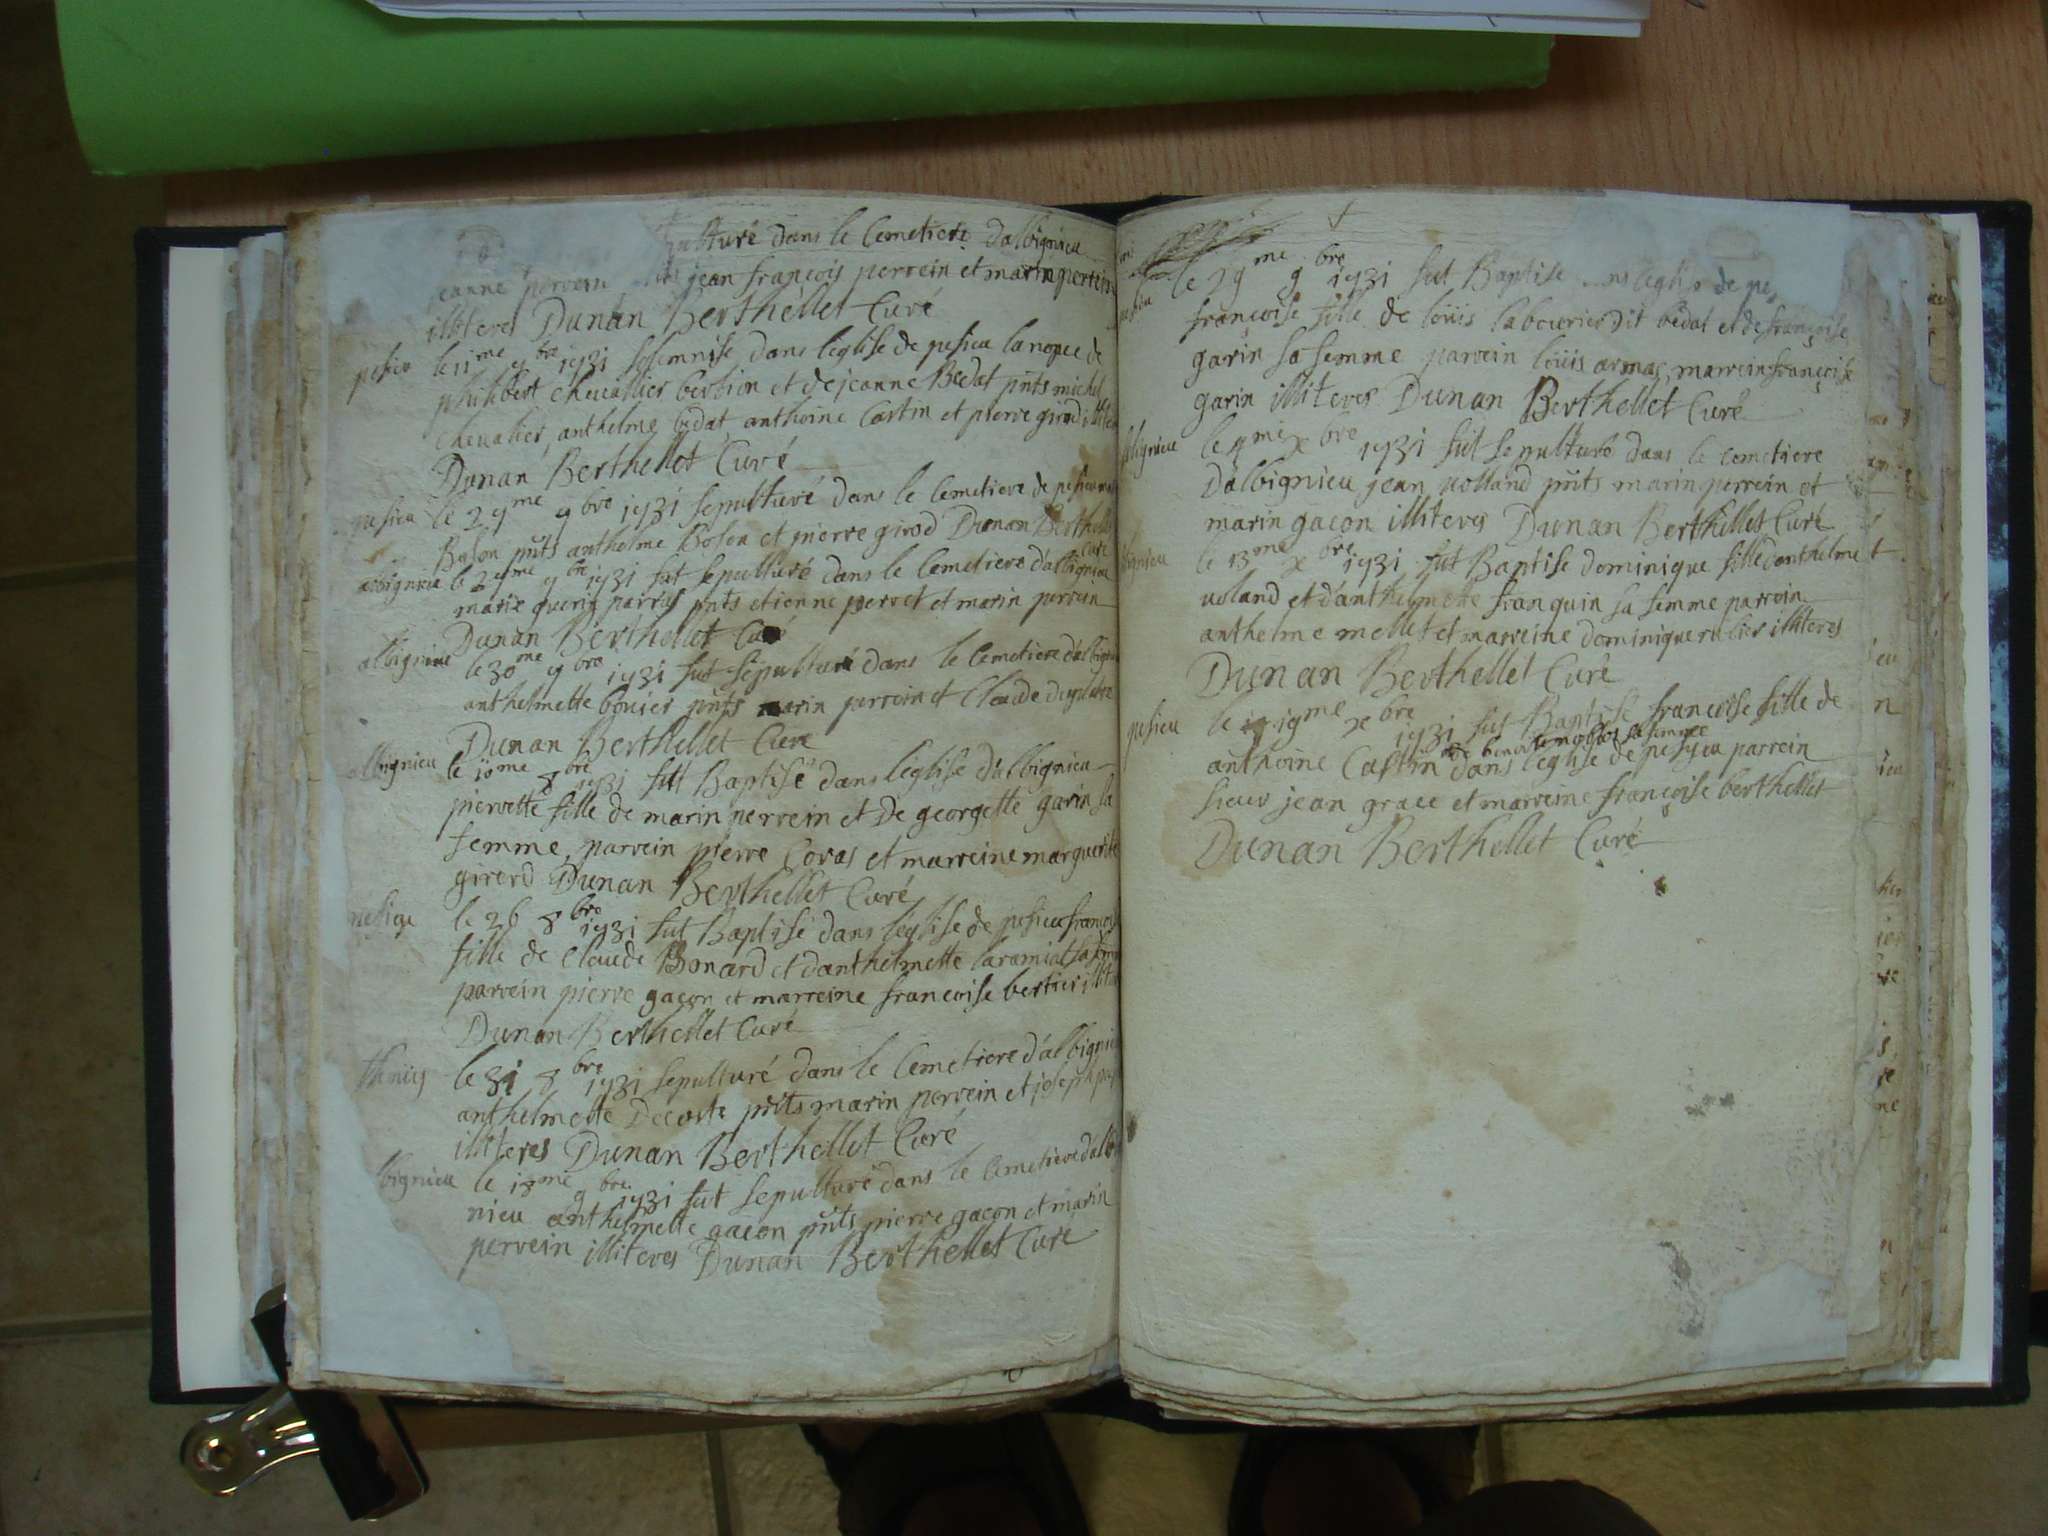 sepulturé dans le Cemetiere d'albignieu
jeanne perrein jean françois perrein et marin perrein
illiteres Dunan Berthellet Curé
pesieu le 11me 9bre 1731 solemnise dans leglise de pesieu la nopce de
philibert chevallier bertion et de jeanne Bedat pnts michel
chevalier, anthelme bedat anthoine Castin et pierre girod illiteres
Dunan Berthellet Curé
pesieu le 29me 9bre 1731 sepulturé dans le Cemetiere de pesieu
Boson pnts anthelme Boson et pierre girod Dunan Berthellet
Curé
albignieu le 29me 9bre 1731 fut sepulturé dans le Cemetiere d'albignieu
marie guerin pnts etienne perret et marin perrein
Dunan Berthellet Curé
albignieu le 30me 9bre 1731 fut sepulturé dans le Cemetiere d'albignieu
anthelmette bouier pnts marin perrein et Claude
Dunan Berthellet Cure
albignieu le 10me 8bre 1731 fut Baptisé dans leglise d'albignieu
pierrette fille de marin perrein et De georgette garin sa
femme, parrein pierre Coras et marreine marguerite
girerd Dunan Berthellet Curé
pesieu le 26 8bre 1731 fut Baptisé dans leglise de pesieu françoise
fille de Claude Bonard et d'anthelmette laramiat sa femme
parrein pierre gaçon et marreine françoise bertier illiteres
Dunan Berthellet Curé
thuis le 31 8bre 1731 sepulturé dans le Cemetiere d'albignieu
anthelmette Decoste pnts marin perrein et joseph
illiteres Dunan Berthellet Curé
lbignieu le 18me 9bre 1731 fut sepulturé dans le Cemetiere d'albig
nieu anthelmette gacon pnts pierre gacon et marin
perrein illiteres Dunan Berthellet Cure
le 29me 9bre 1731 fut Baptise leglise de pe
françoise fille de loüis labourier dit bedat et de françoise
garin sa femme parrein loüis armas, marrein françoise
garin illiteres Dunan Berthellet Curé
albignieu le 4me xbre 1731 fut sepulturé dans le cemetiere
D'albignieu jean volland pnts marin perrein et
marin gacon illiteres Dunan Berthellet Curé
albignieu le 13me xbre 1731 fut Baptise dominique fille d'anthelme
voland et d'anthelmette franquin sa femme parrein
anthelme mellet et marreine dominique rulier illiteres
Dunan Berthellet Curé
pesieu le 19me xbre 1731 fut Baptisé francoise fille de
sa femme
anthoine Castin dans leglise de pesyeu parrein
sieur jean grace et marreine françoise berthellet
Dunan Berthellet Curé